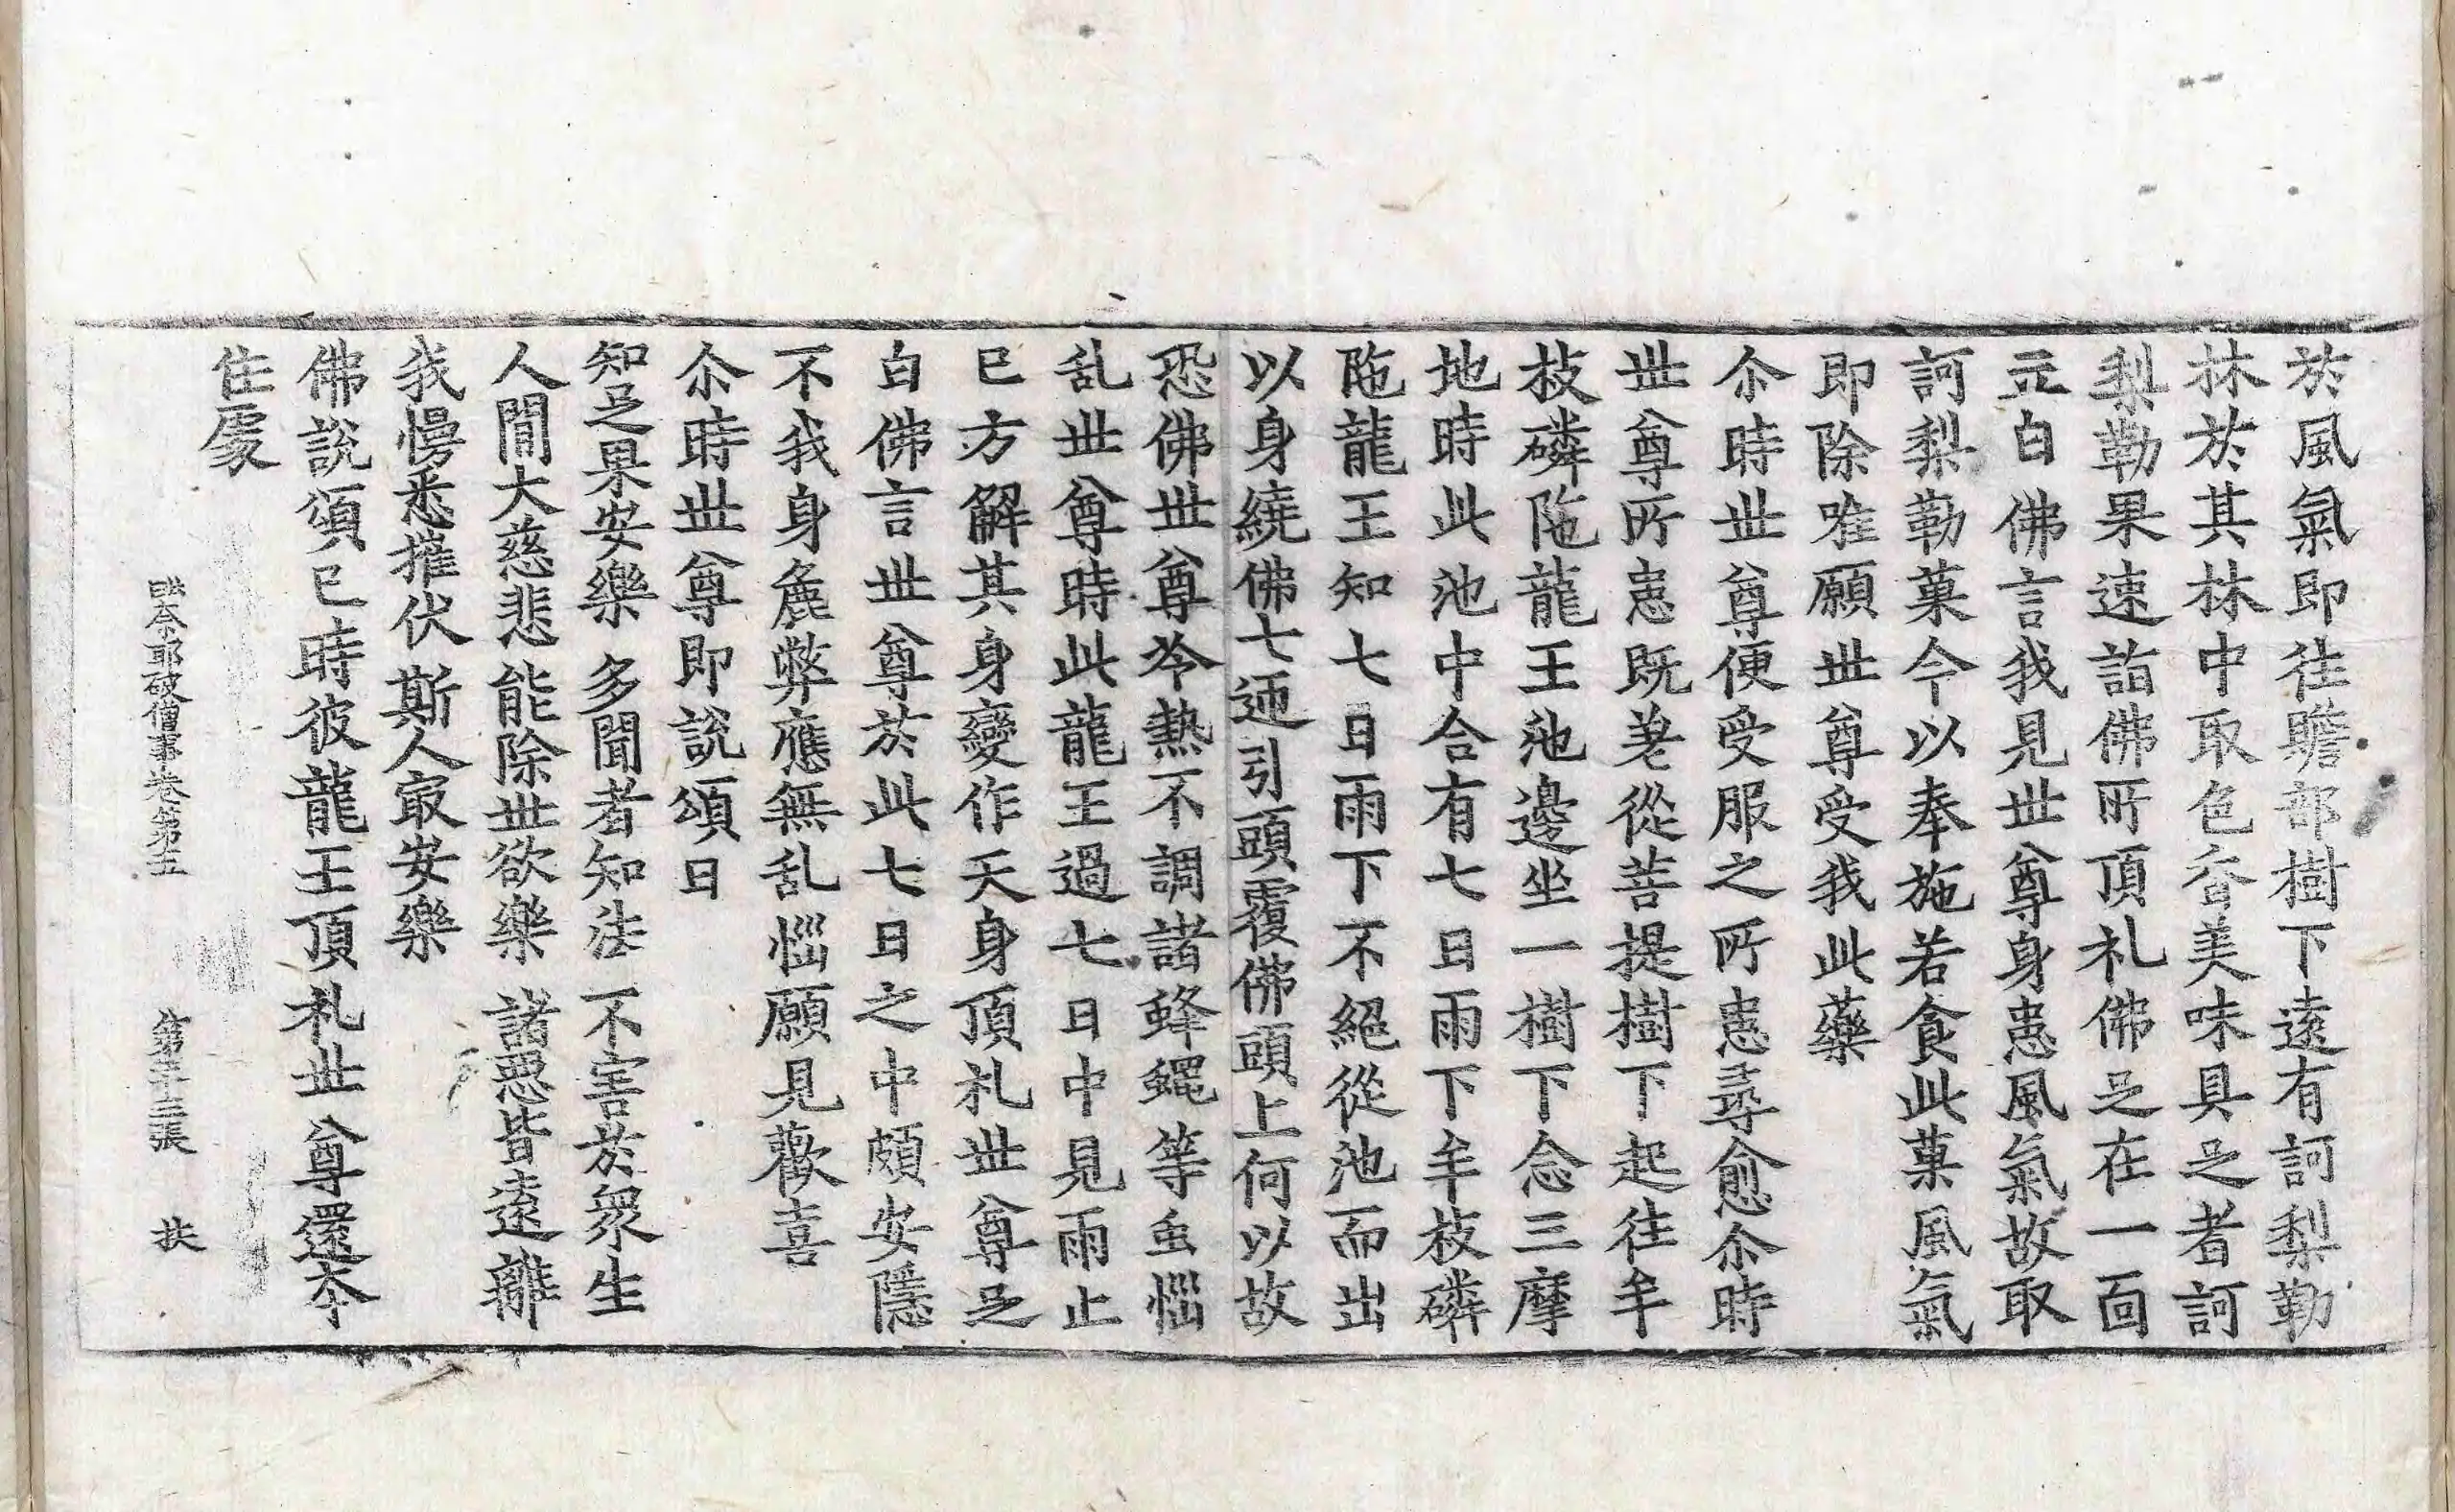 於風氣即往贍部樹下遠有訶梨勒
林於其林中取色香美味具足者訶
梨勒果速詣佛所頂礼佛足在一面
立白佛言我見世尊身患風氣故取
訶梨勒菓今以奉施若食此菓風氣
即除唯願世尊受我此藥
尒時世尊便受服之所患尋愈尒時
世尊所患既差從菩提樹下起往牟
枝磷陁龍王池邊坐一樹下念三摩
地時此池中合有七日雨下牟枝磷
陁龍王知七日雨下不絕從池而出
以身繞佛七迊引頭覆佛頭上何以故
恐佛世尊冷熱不調諸蜂蠅等虫惱
乱世尊時此龍王過七日中見雨止
已方解其身變作天身頂礼世尊足
白佛言世尊於此七日之中頗安隱
不我身麁弊應無乱惱願見歡喜
尒時世尊即說頌曰
知足果安樂 多聞者知法 不害於眾生
人間大慈悲 能除世欲樂 諸惡皆遠離
我慢悉摧伏 斯人冣安樂
佛說頌已時彼龍王頂礼世尊還本
住處
毗奈耶破僧事卷第五 第二十三張 扶